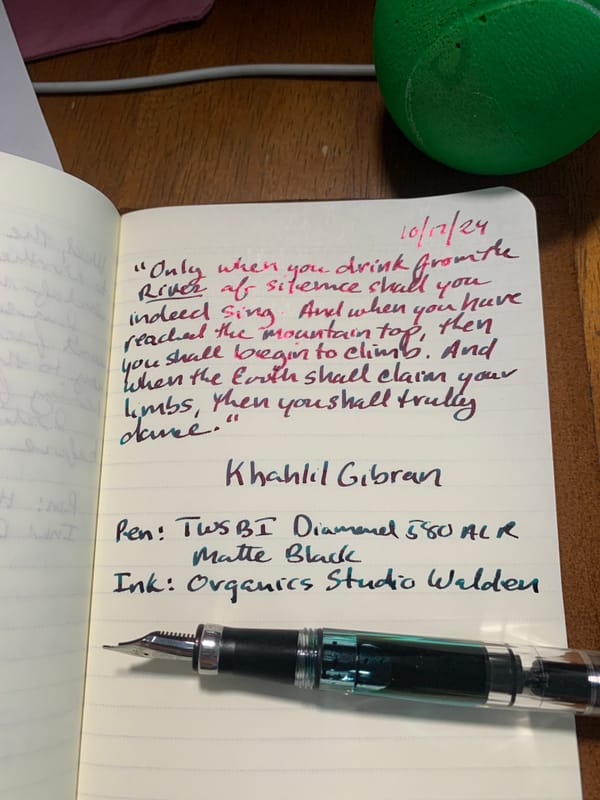 10/17/24
"Only when you drink from the
River of silence shall you
indeed sing. And when you have
reached the mountain top, then
you shall begin to climb. And
when the Earth shall claim your
limbs, then you shall trully
dance."
Khahlil Gibran
Pen: TWSBI Diamond 580 ALR
Matte Black
Ink: Organics Studio Walden